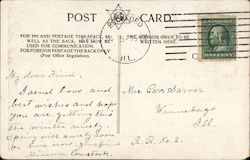 POST CARD.
FOR INLAND POSTAGE THIS SPACE, AS
WELL AS THE BACK, MAY NOW BE
USED FOR COMMUNICATION.
FOR FOREIGN POSTAGE THE BACK ONLY
(Post Office Regulation).
THE ADDRESS ONLY TO BE
WRITTEN HERE.
ILL.
My dear Friend.
I send love and
best wishes and hope
you are getting
the winter
spring will
be here soon,
Minerva Comstock.
Mrs. Carr
Winnebago
Ill.
R. R. No. 2.